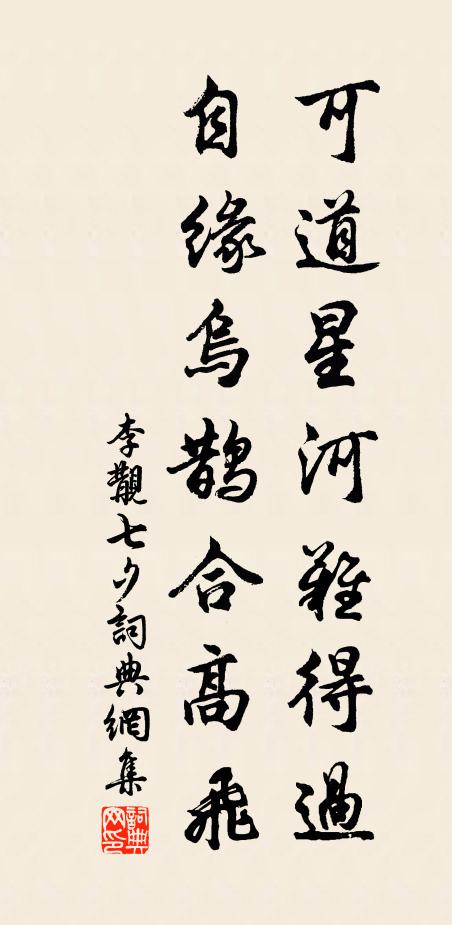 可道星河難得過
自緣烏鵲合高飛
李覯七夕詞典網集
詞典
网印